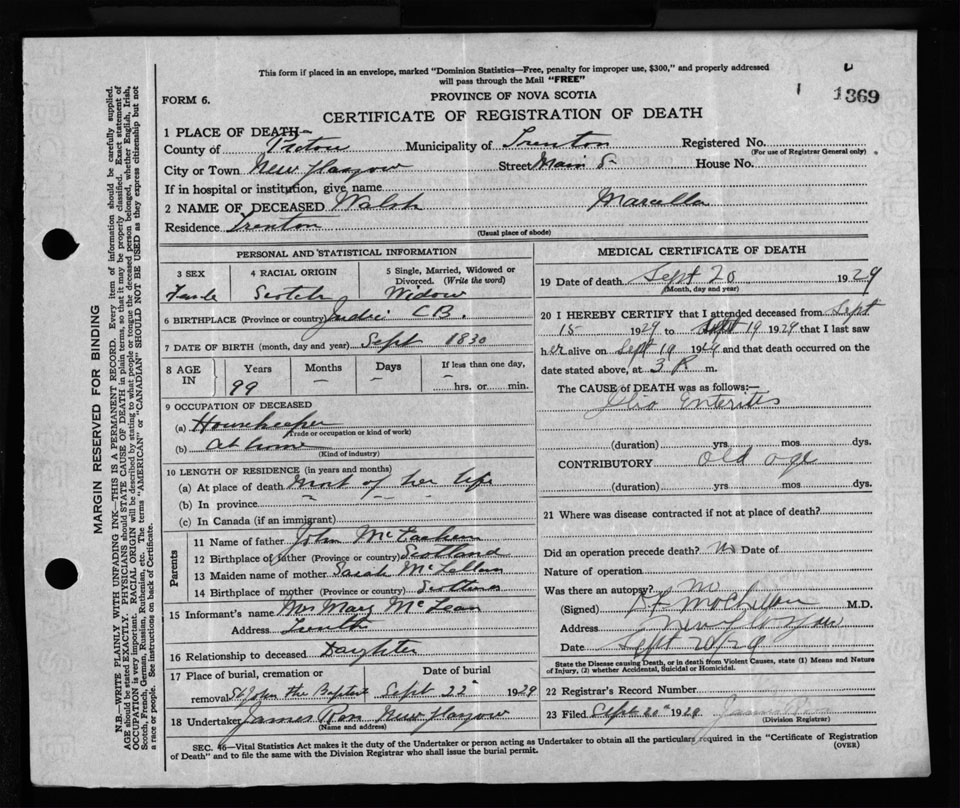 This form if placed in an envelope, marked "Dominion Statistics—Free, penalty for improper use, $300," and properly addressed
will pass through the Mail "FREE"
1369
FORM 6.
PROVINCE OF NOVA SCOTIA
CERTIFICATE OF REGISTRATION OF DEATH
1 PLACE OF DEATH—
County of Pictou Municipality of Trenton Registered No.
(For use of Registrar General only)
City or Town New Glasgow Street Main St House No.
If in hospital or institution, give name
2 NAME OF DECEASED Walsh Marcella
Residence Trenton
(Usual place of abode)
PERSONAL AND STATISTICAL INFORMATION
3 SEX 4 RACIAL ORIGIN 5 Single, Married, Widowed or
Divorced. (Write the word)
Female Scotch Widow
6 BIRTHPLACE (Province or country) C B.
7 DATE OF BIRTH (month, day and year) Sept 1830
8 AGE IN Years Months Days If less than one day,
99 — — hrs. or min.
9 OCCUPATION OF DECEASED
(a) Housekeeper
(Trade or occupation or kind of work)
(b) at home
(Kind of industry)
10 LENGTH OF RESIDENCE (in years and months)
(a) At place of death most of her life
(b) In province
(c) In Canada (if an immigrant)
Parents
11 Name of father John McEachern
12 Birthplace of father (Province or country) Scotland
13 Maiden name of mother Sarah McLellan
14 Birthplace of mother (Province or country) Scotland
15 Informant's name Mrs Mary McLean
Address
16 Relationship to deceased Daughter
17 Place of burial, cremation or Date of burial
removal St John the Baptist Sept 22 1929
18 Undertaker James Ross New Glasgow
(Name and address)
MEDICAL CERTIFICATE OF DEATH
19 Date of death Sept 20 1929
(Month, day and year)
20 I HEREBY CERTIFY that I attended deceased from Sept
15 1929 to Sept 19 1929 that I last saw
her alive on Sept 19 1929 and that death occurred on the
date stated above, at 3 P. m.
The CAUSE OF DEATH was as follows:—
Ilio Enteritis
(duration) yrs mos dys.
CONTRIBUTORY old age
(duration) yrs. mos. dys.
21 Where was disease contracted if not at place of death?
Did an operation precede death? no Date of
Nature of operation
Was there an autopsy? no
(Signed) M.D.
Address New Glasgow
Date Sept 20/29
State the Disease causing Death, or in death from Violent Causes, state (1) Means and Nature
of Injury, (2) whether Accidental, Suicidal or Homicidal.
22 Registrar's Record Number
23 Filed Sept 20th 1929 James
(Division Registrar)
SEC. 46—Vital Statistics Act makes it the duty of the Undertaker or person acting as Undertaker to obtain all the particulars required in the "Certificate of Registration
of Death" and to file the same with the Division Registrar who shall issue the burial permit.
(OVER)
MARGIN RESERVED FOR BINDING
N.B.—WRITE PLAINLY WITH UNFADING INK—THIS IS A PERMANENT RECORD. Every item of information should be carefully supplied.
AGE should be stated EXACTLY. PHYSICIANS should STATE CAUSE OF DEATH in plain terms, so that it may be properly classified. Exact statement of
OCCUPATION is very important. RACIAL ORIGIN will be described by stating to what people or tongue the deceased person belonged, whether English, Irish,
Scotch, French, German, Russian, Ruthenian, etc. The terms "AMERICAN" or "CANADIAN" SHOULD NOT BE USED as they express citizenship but not
a race or people. See instructions on back of Certificate.